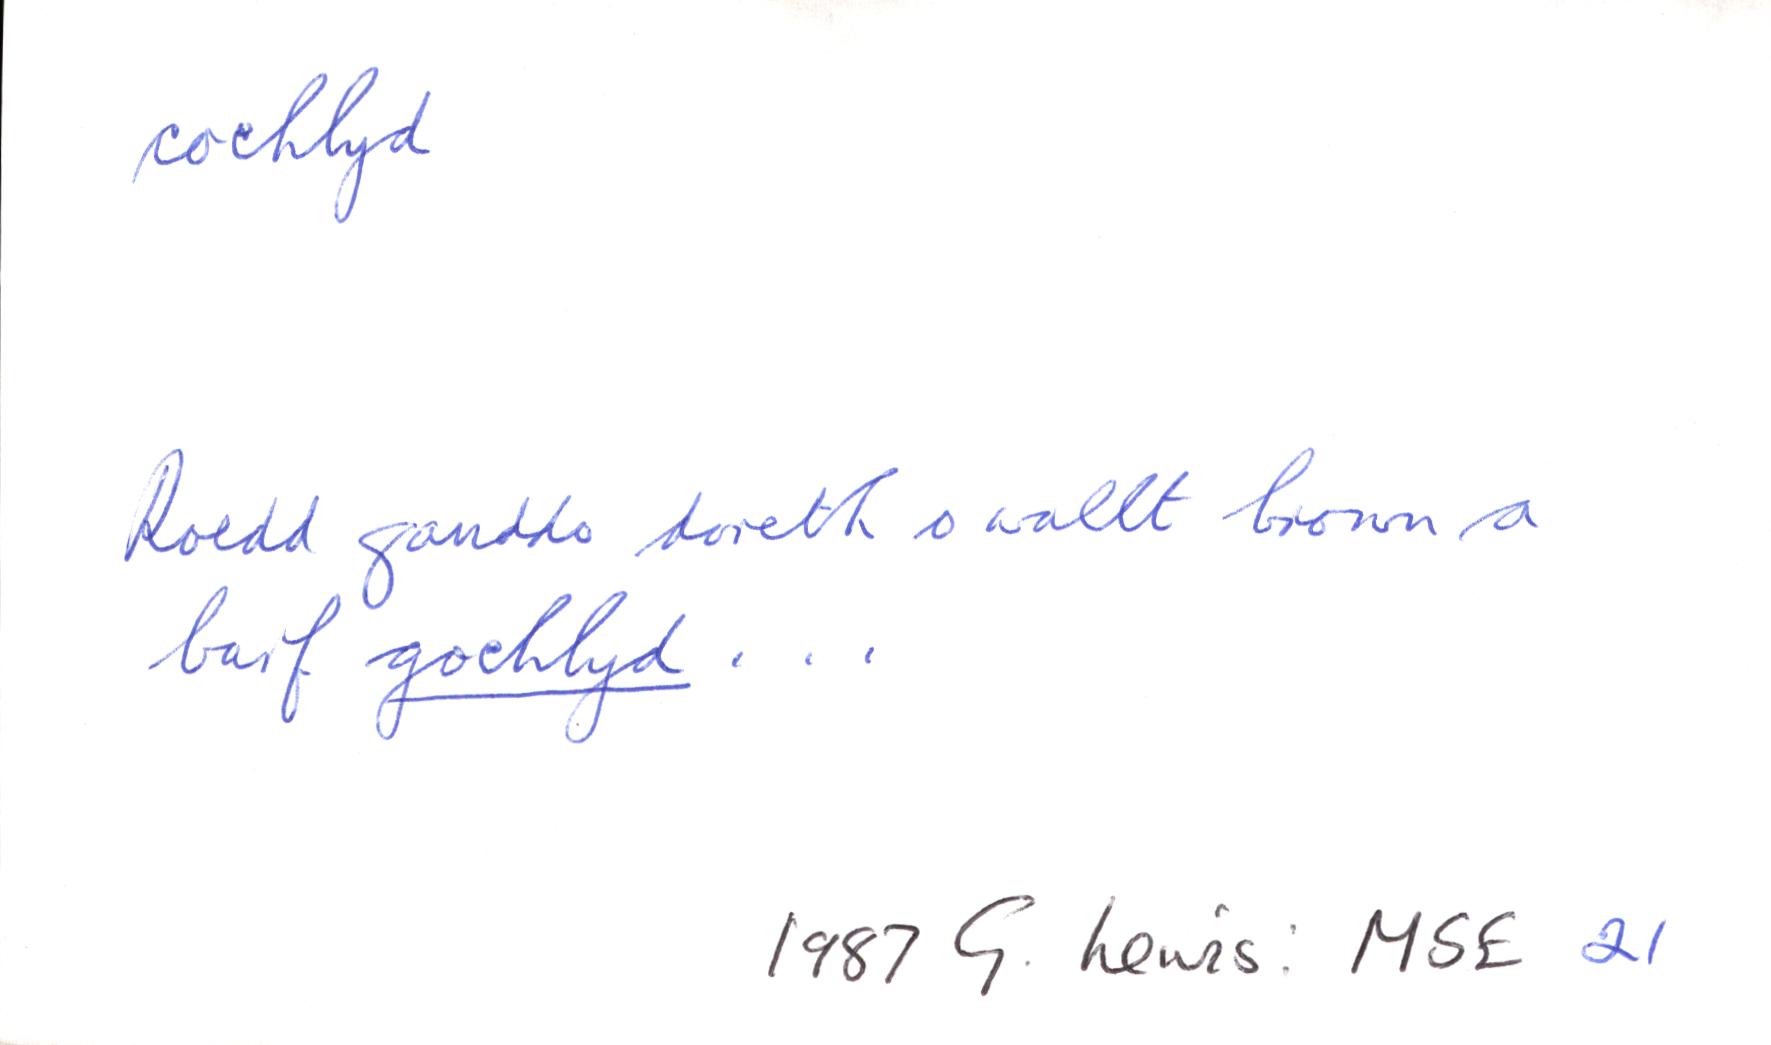 cochlyd
Roedd ganddo doreth o wallt brown a
barf gochlyd . . .
1987 G. Lewis: MSE 21